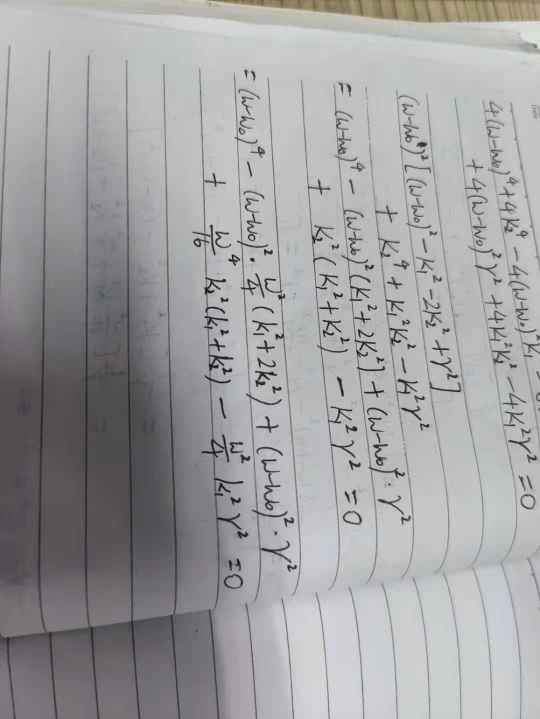 4(ω-ω₀)⁴ + 4k₂⁴ - 4(ω-ω₀)²k₁
+ 4(ω-ω₀)²γ² + 4k₁²k₂² - 4k₁²γ² = 0
(ω-ω₀)² [(ω-ω₀)² - k₁² - 2k₂² + γ²]
+ k₂⁴ + k₁²k₂² - k₁²γ²
= (ω-ω₀)⁴ - (ω-ω₀)²(k₁² + 2k₂²) + (ω-ω₀)²·γ²
+ k₂²(k₁² + k₂²) - k₁²γ² = 0
= (ω-ω₀)⁴ - (ω-ω₀)²·ω²/4 (k₁² + 2k₂²) + (ω-ω₀)²·γ²
+ ω⁴/16 k₂²(k₁² + k₂²) - ω²/4 k₁²γ² = 0